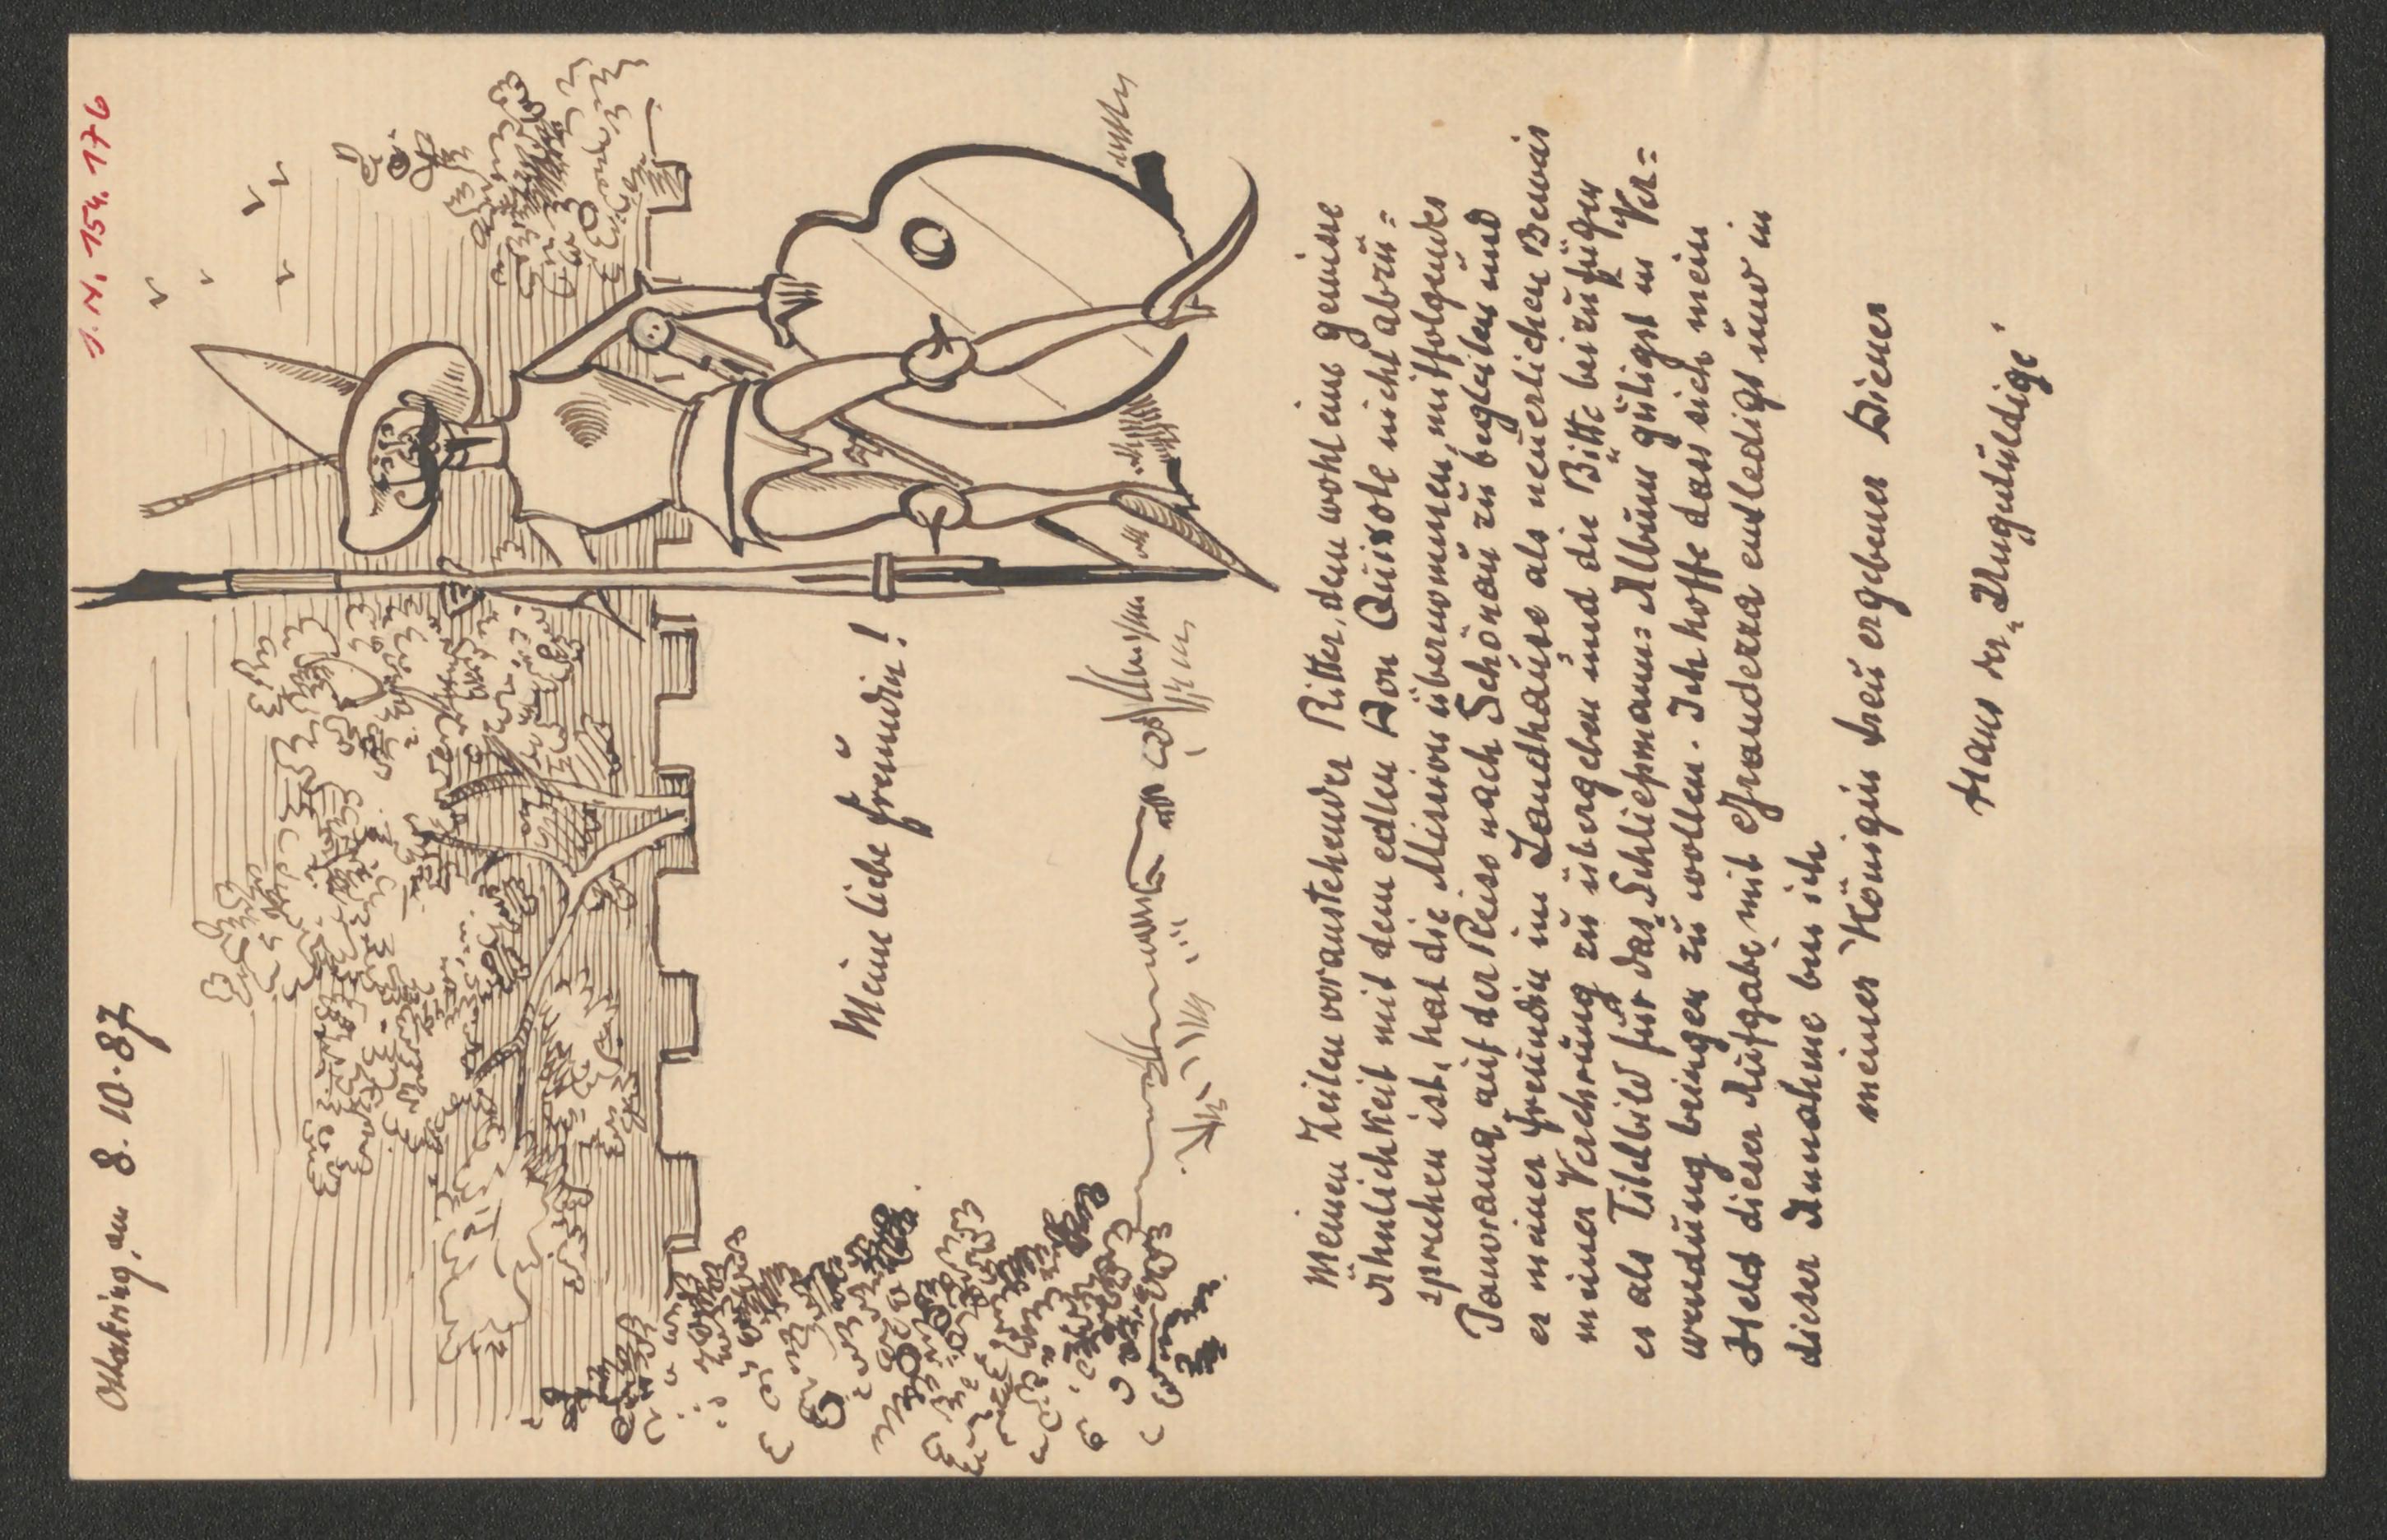 J. N. 154.176
Ottakring, am 8.10.87
Meine liebe Freundin!
Meinen Zeilen voranstehender Ritter, dem wohl eine gewisse
Ähnlichkeit mit dem edlen Don Quixote nicht abzu=
sprechen ist, hat die Mission übernommen, mitfolgendes
Panorama auf der Reise nach Schönau zu begleiten und
es meiner Freundin im Landhause als neuerlichen Beweis
meiner Verehrung zu übergeben und die Bitte beizufügen
es als Titelbild für das "Schließmann=Album" gütigst in Ver=
wendung bringen zu wollen. Ich hoffe dass sich mein
Held dieser Aufgabe mit Grandezza entledigt und in
dieser Annahme bin ich
meiner Königin treu ergebener Diener
Hans der „Ungeduldige"